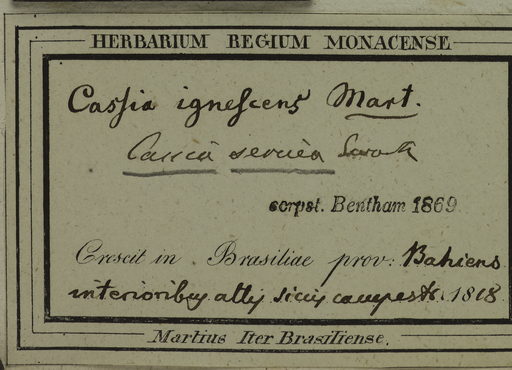 HERBARIUM REGIUM MONACENSE
Cassia ignescens Mart.
Cassia sericea Swartz
scrpst. Bentham 1869
Crescit in Brasiliae prov: Bahiens
interioribus altis siccis campestr. 1818
Martius Iter Brasiliense.